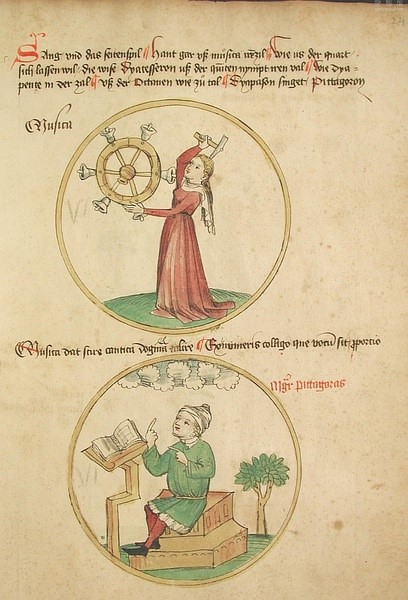 Sang vnd das seitenspil hant gar vß musica vrteil wie us der quart
sich lassen wil die wise Dyatesseron uß der quinten nympt iren val wie dya-
pente in der zal vß der Octauen wie zu tal Sympason singet pittagoras
Musica
Musica dat scire cantica dogma E numeris colligo que vocum sit proportio
Mgr pittagoras